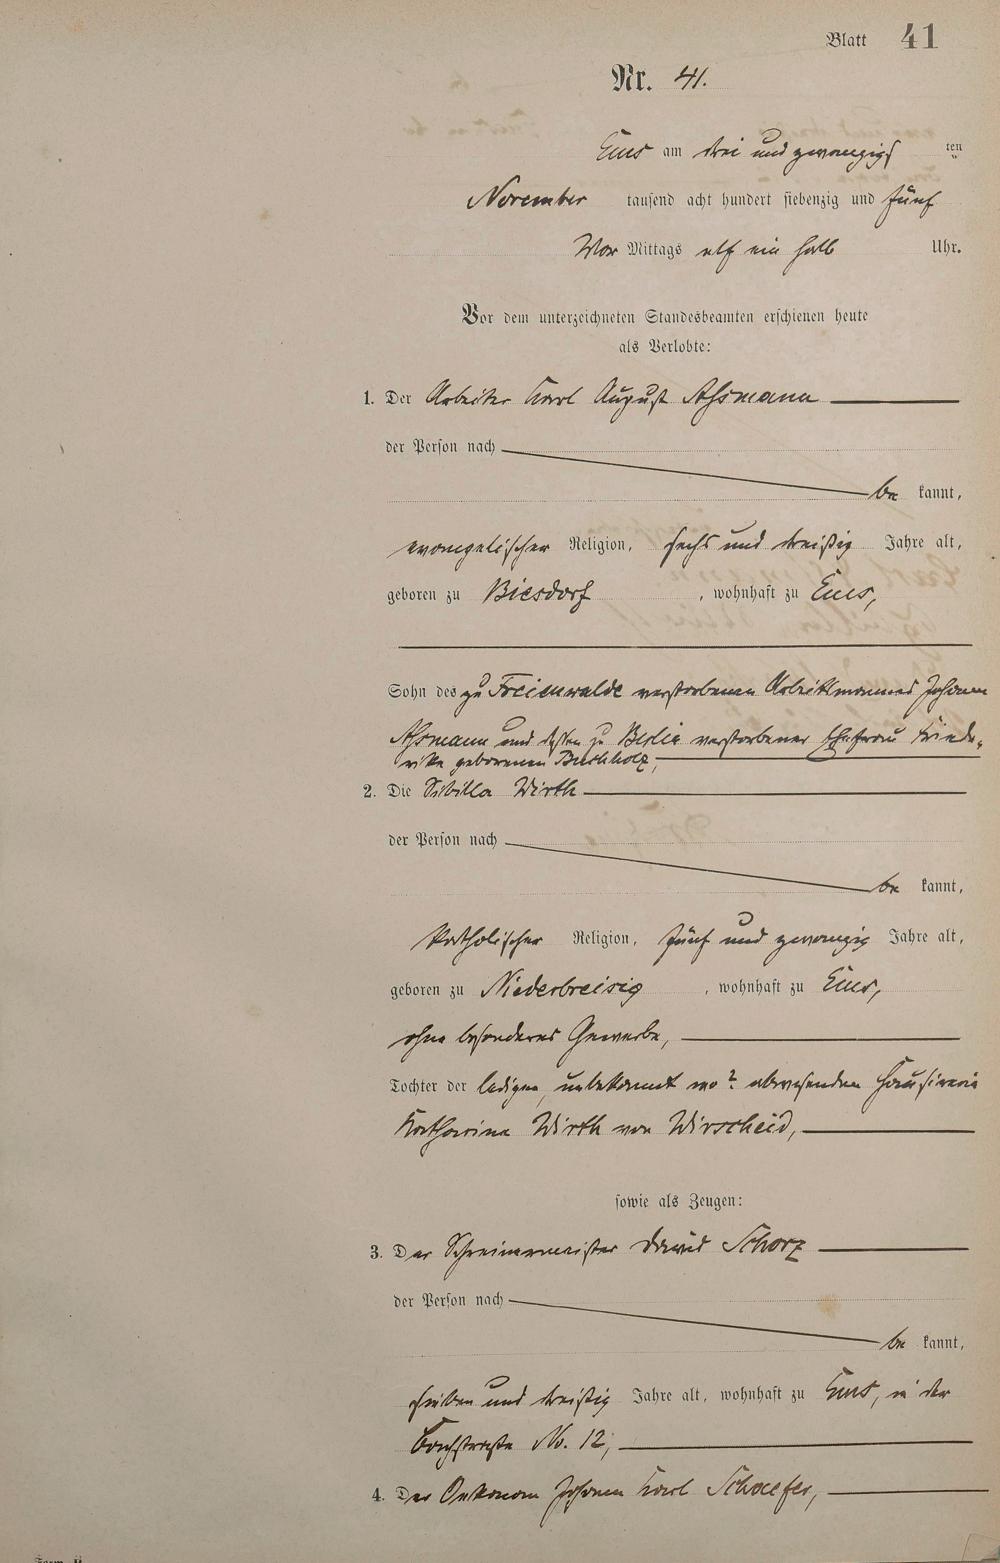 Blatt 41
Nr. 41.
Ems am drei und zwanzigs ten
November tausend acht hundert siebenzig und fünf
Vor Mittags elf ein halb Uhr.
Vor dem unterzeichneten Standesbeamten erschienen heute
als Verlobte:
1. Der Arbeiter Karl August Aßmann
der Person nach
be kannt,
evangelischer Religion, sechs und dreißig Jahre alt,
geboren zu Biesdorf, wohnhaft zu Ems,
Sohn des zu Freienwalde verstorbenen Arbeitsmannes Johann
Aßmann und dessen zu Berlin verstorbener Ehefrau Friede-
rike geborenen Buchholz,
2. Die Sibilla Wirth
der Person nach
be kannt,
katholischer Religion, fünf und zwanzig Jahre alt,
geboren zu Niederbreisig, wohnhaft zu Ems,
ohne besonderes Gewerbe,
Tochter der ledigen, unbekannt wo? abwesenden Hausirerin
Katharina Wirth von Wirscheid,
sowie als Zeugen:
3. Der Schreinermeister David Schorz
der Person nach
be kannt,
sieben und dreißig Jahre alt, wohnhaft zu Ems, in der
Bachstraße No. 12,
4. Der Oekonom Johann Karl Schaefer,